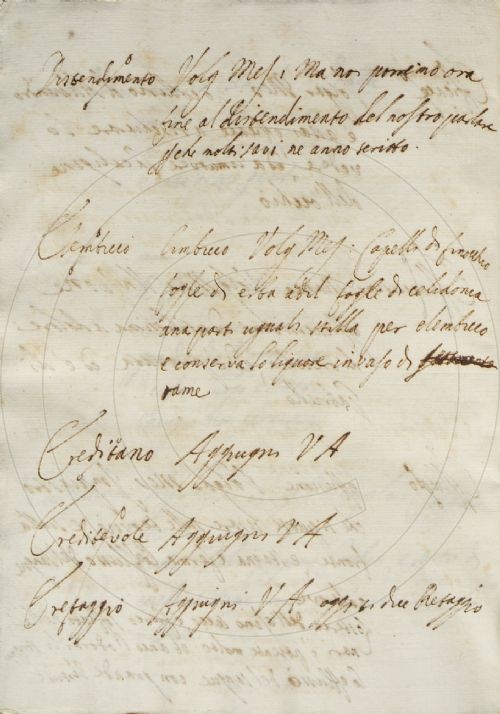 Distendimento Volg Mes: Ma noi porremo ora
fine al distendimento del nostro parlare
che molti savi ne anno scritto.
Elembicco Limbicco Volg Mes: Capelli di finocchio
fogle di erba fogle di celidonia
ana parti uguali stilla per elembicco
e conserva lo liquore in vaso di
rame
Ereditano Aggiugni V A
Ereditevole Aggiugni V A
Eretaggio Aggiugni V A oggi si dice Retaggio